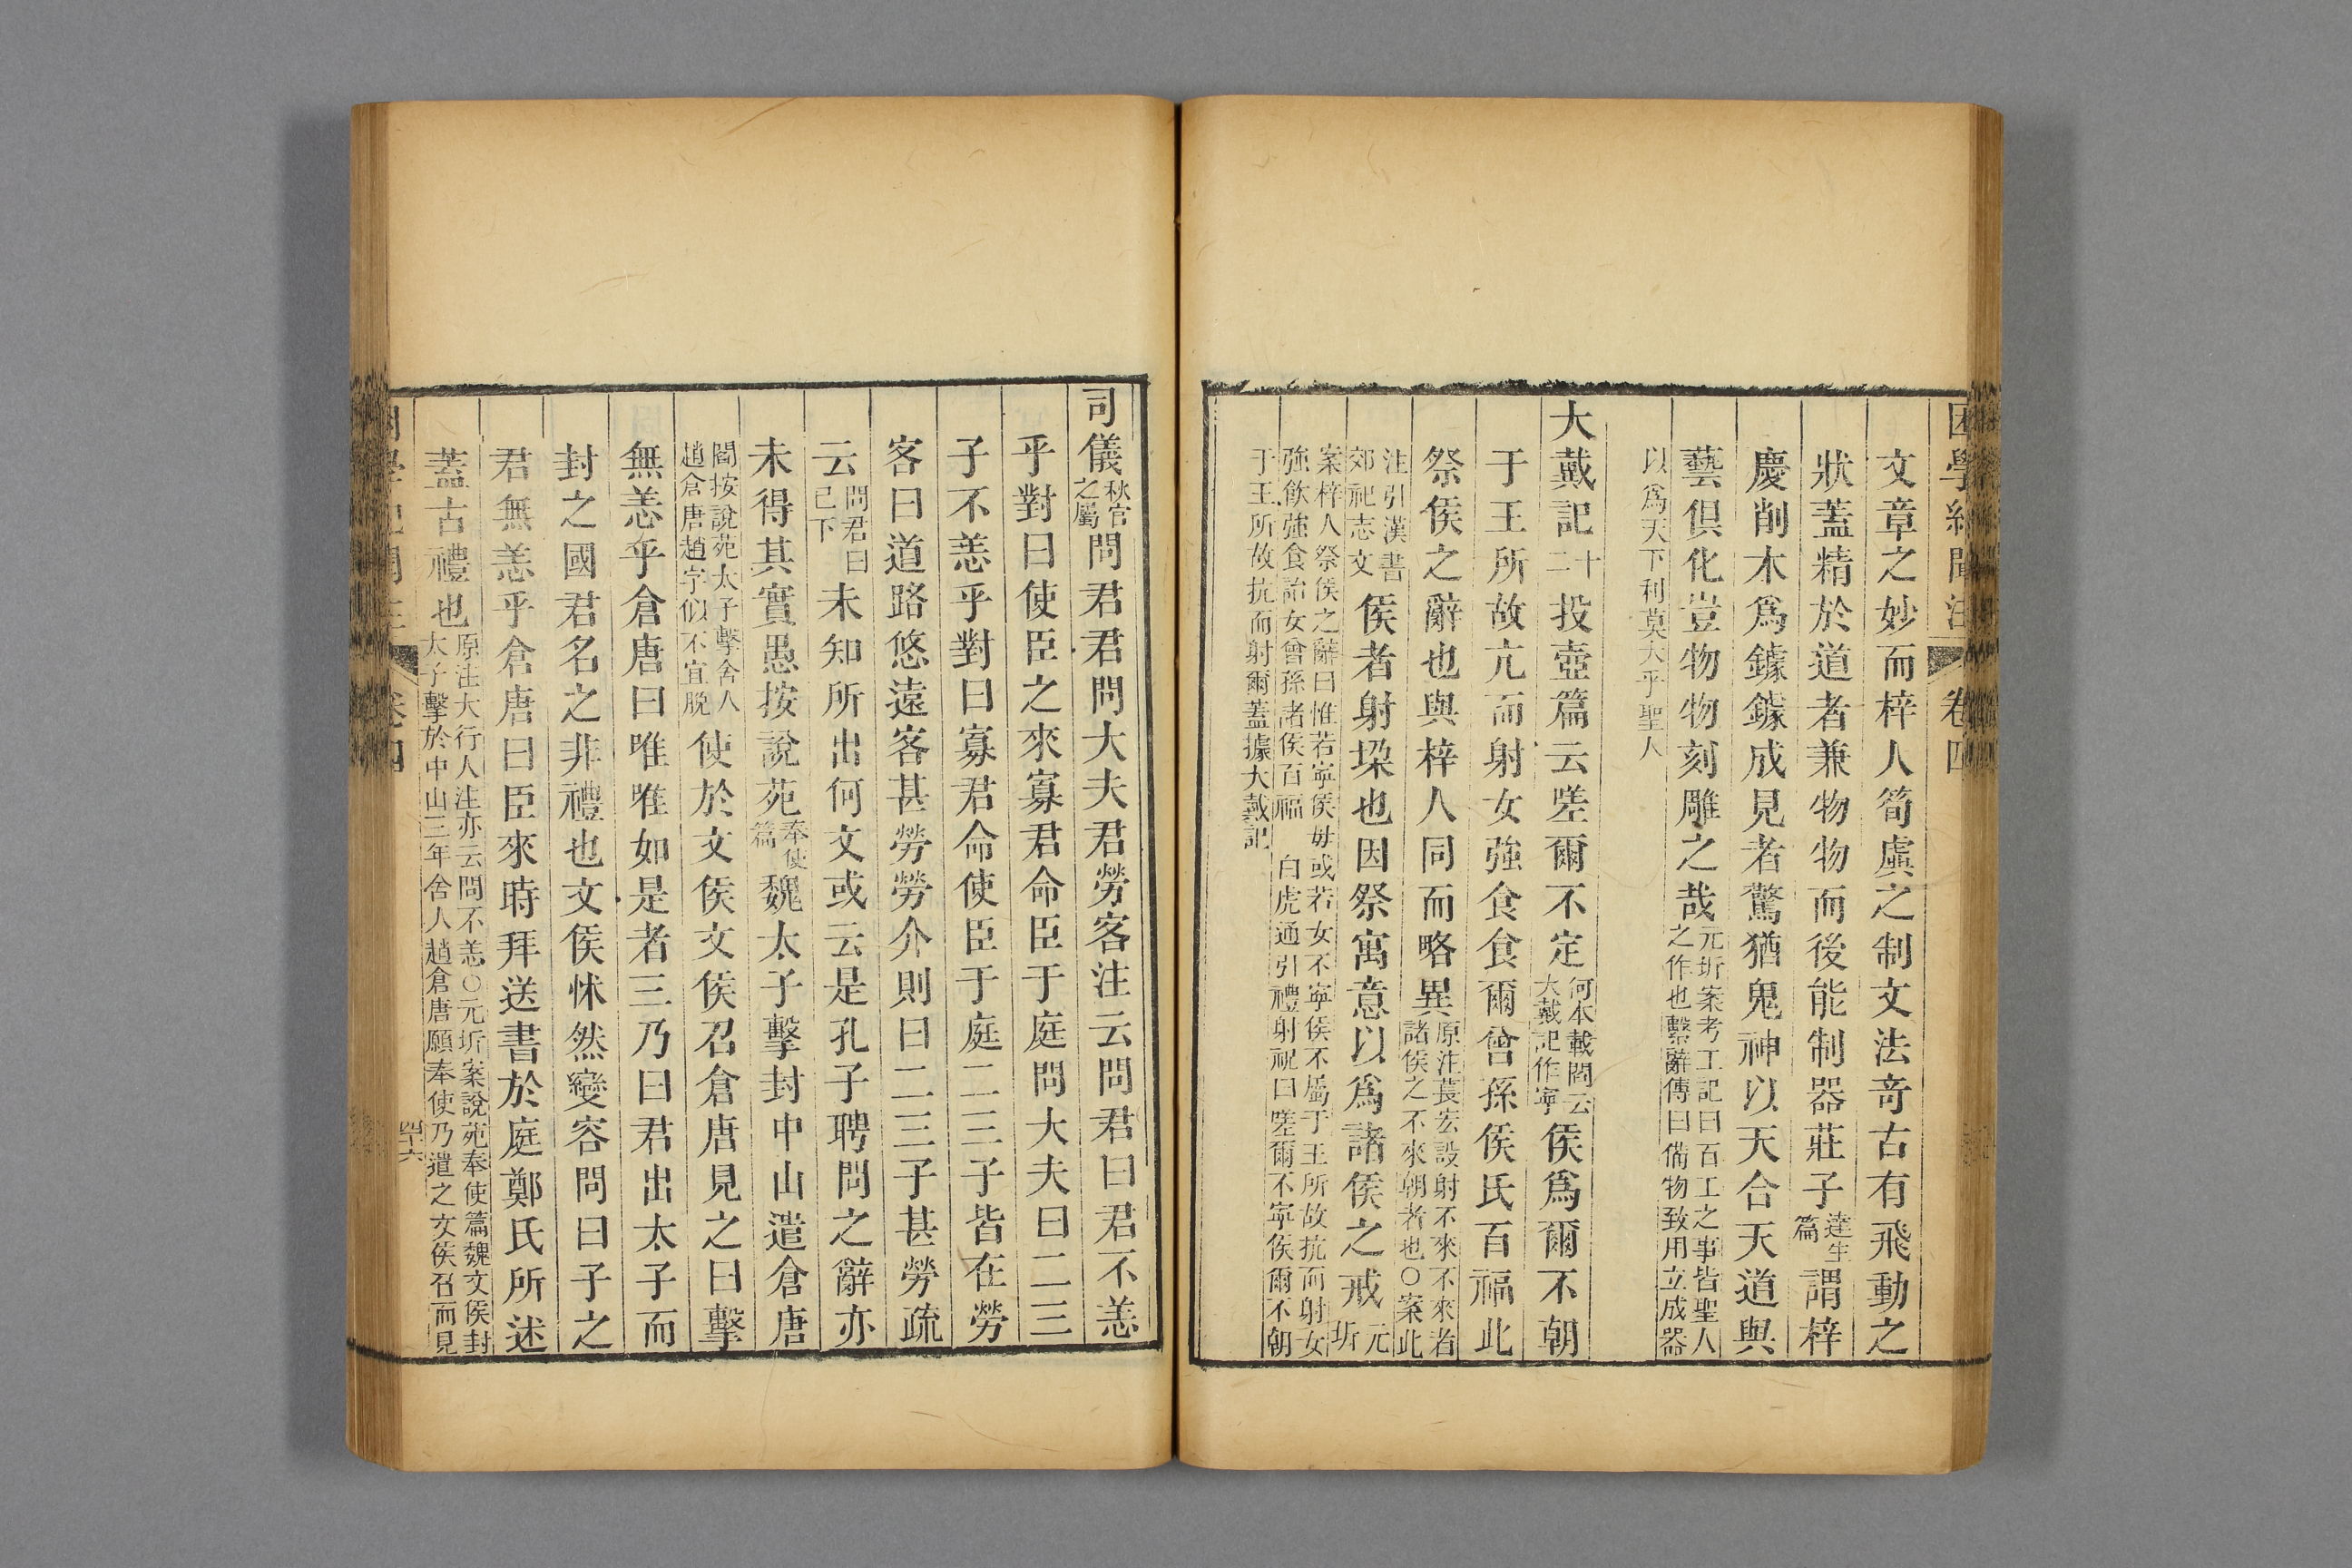 困學紀聞注 卷四
文章之妙而梓人筍虡之制文法奇古有飛動之
狀蓋精於道者兼物物而後能制器莊子達生篇謂梓
慶削木爲鐻鐻成見者驚猶鬼神以天合天道與
藝俱化豈物物刻雕之哉元圻案考工記曰百工之事皆聖人之作也繫辭傳曰備物致用立成器
以爲天下利莫大乎聖人
大戴記二十投壺篇云嗟爾不定何本載閻云大戴記作寧侯爲爾不朝
于王所故亢而射女強食食爾曾孫侯氏百福此
祭侯之辭也與梓人同而略異原注萇宏設射不來不來者諸侯之不來朝者也○案此
注引漢書郊祀志文侯者射垜也因祭寓意以爲諸侯之戒元圻
案梓人祭侯之辭曰惟若寧侯毋或若女不寧侯不屬于王所故抗而射女強飲強食詒女曾孫諸侯百福 白虎通引禮射祝曰嗟爾不寧侯爾不朝
于王所故抗而射爾蓋據大戴記
司儀秋官之屬問君君問大夫君勞客注云問君曰君不恙
乎對曰使臣之來寡君命臣于庭問大夫曰二三
子不恙乎對曰寡君命使臣于庭二三子皆在勞
客曰道路悠遠客甚勞勞介則曰二三子甚勞疏
云問君曰已下未知所出何文或云是孔子聘問之辭亦
未得其實愚按說苑奉使篇魏太子擊封中山遣倉唐
閻按說苑太子擊舍人趙倉唐趙字似不宜脫使於文侯文侯召倉唐見之曰擊
無恙乎倉唐曰唯唯如是者三乃曰君出太子而
封之國君名之非禮也文侯怵然變容問曰子之
君無恙乎倉唐曰臣來時拜送書於庭鄭氏所述
蓋古禮也原注大行人注亦云問不恙○元圻案說苑奉使篇魏文侯封太子擊於中山三年舍人趙倉唐願奉使乃遣之文侯召而見
卷四
四十六